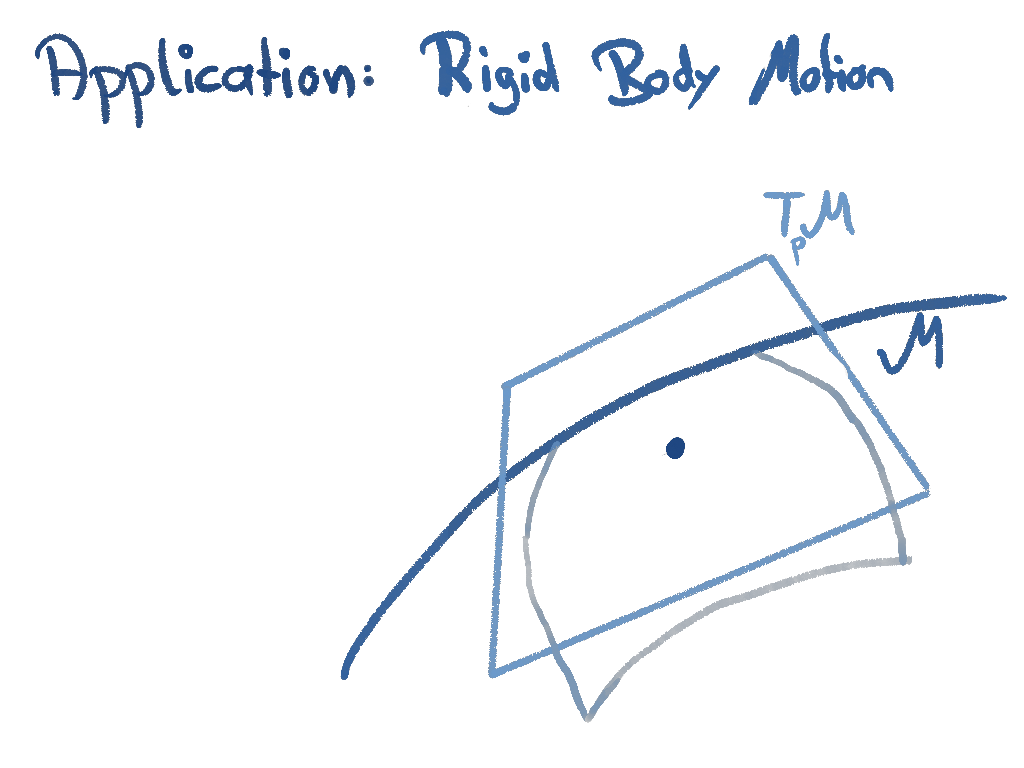 Application: Rigid Body Motion
TpM
M